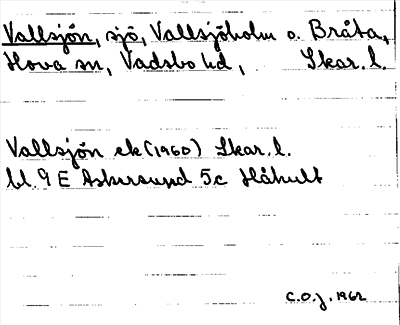 Vallsjön, sjö, Vallsjöholm o. Bråta,
Hova sn, Vadsbo hd, Skar. l.
Vallsjön ek (1960) Skar. l.
bl. 9 E Askersund 5c Håhult
C.O.J. 1962